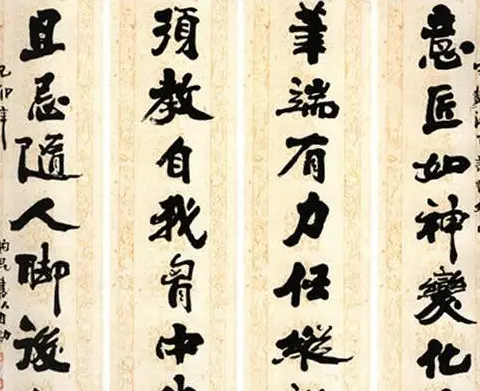 意匠如神變化
筆端有力任縱
須教自我胷中
且忌隨人脚後
己卯年